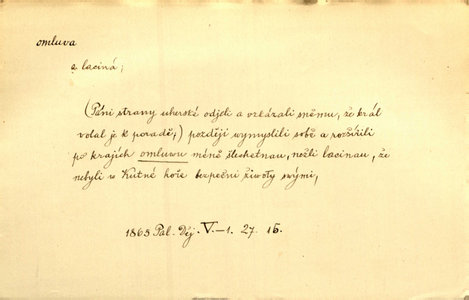 omluva
a laciná;
(Páni strany uherské odjeli a vzkázali sněmu, že král
volal je k poradě;) později wymyslili sobě a rozšířili
po krajích omluwu méně šlechetnau, nežli lacinau, že
nebyli w Kutné hoře bezpečni životy swými,
1865 Pal. Děj. V.–1. 27. 16.